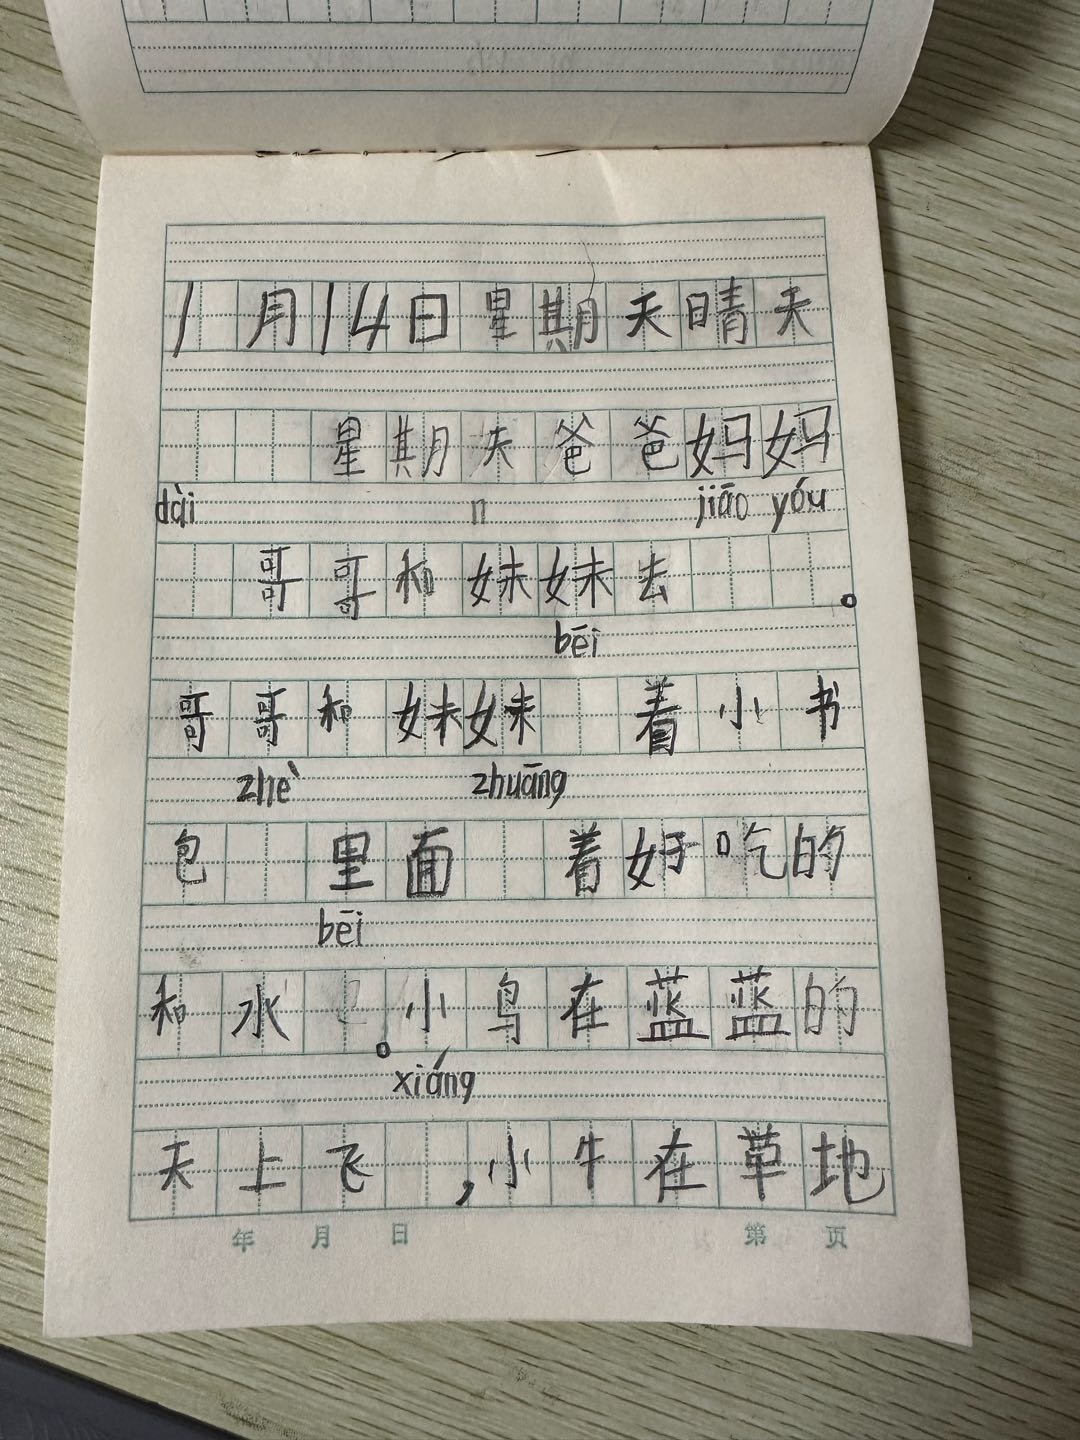 1月14日星期天晴天
星期天爸爸妈妈
dài jiāo yóu
哥哥和妹妹去。
bēi
哥哥和妹妹着小书
zhè zhuāng
包里面着好吃的
bēi
和水。小鸟在蓝蓝的
xiáng
天上飞,小牛在草地
年 月 日 第 页